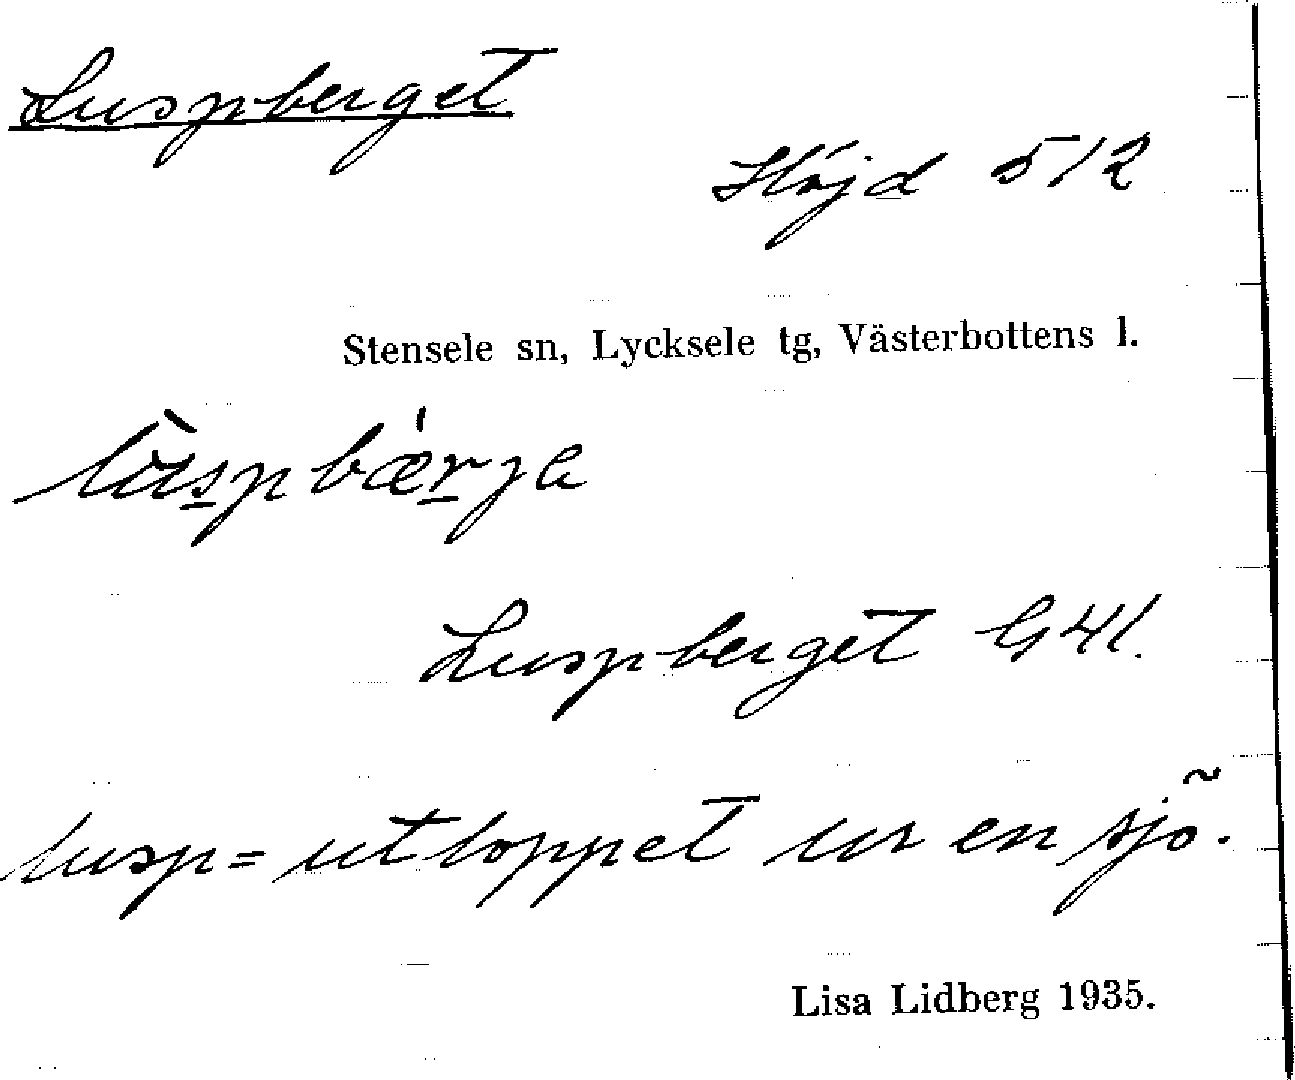 Luspberget
Höjd 512
Stensele sn, Lycksele tg, Västerbottens l.
lùspbǽrje
Luspberget G41.
lusp = utloppet ur en sjö.
Lisa Lidberg 1935.